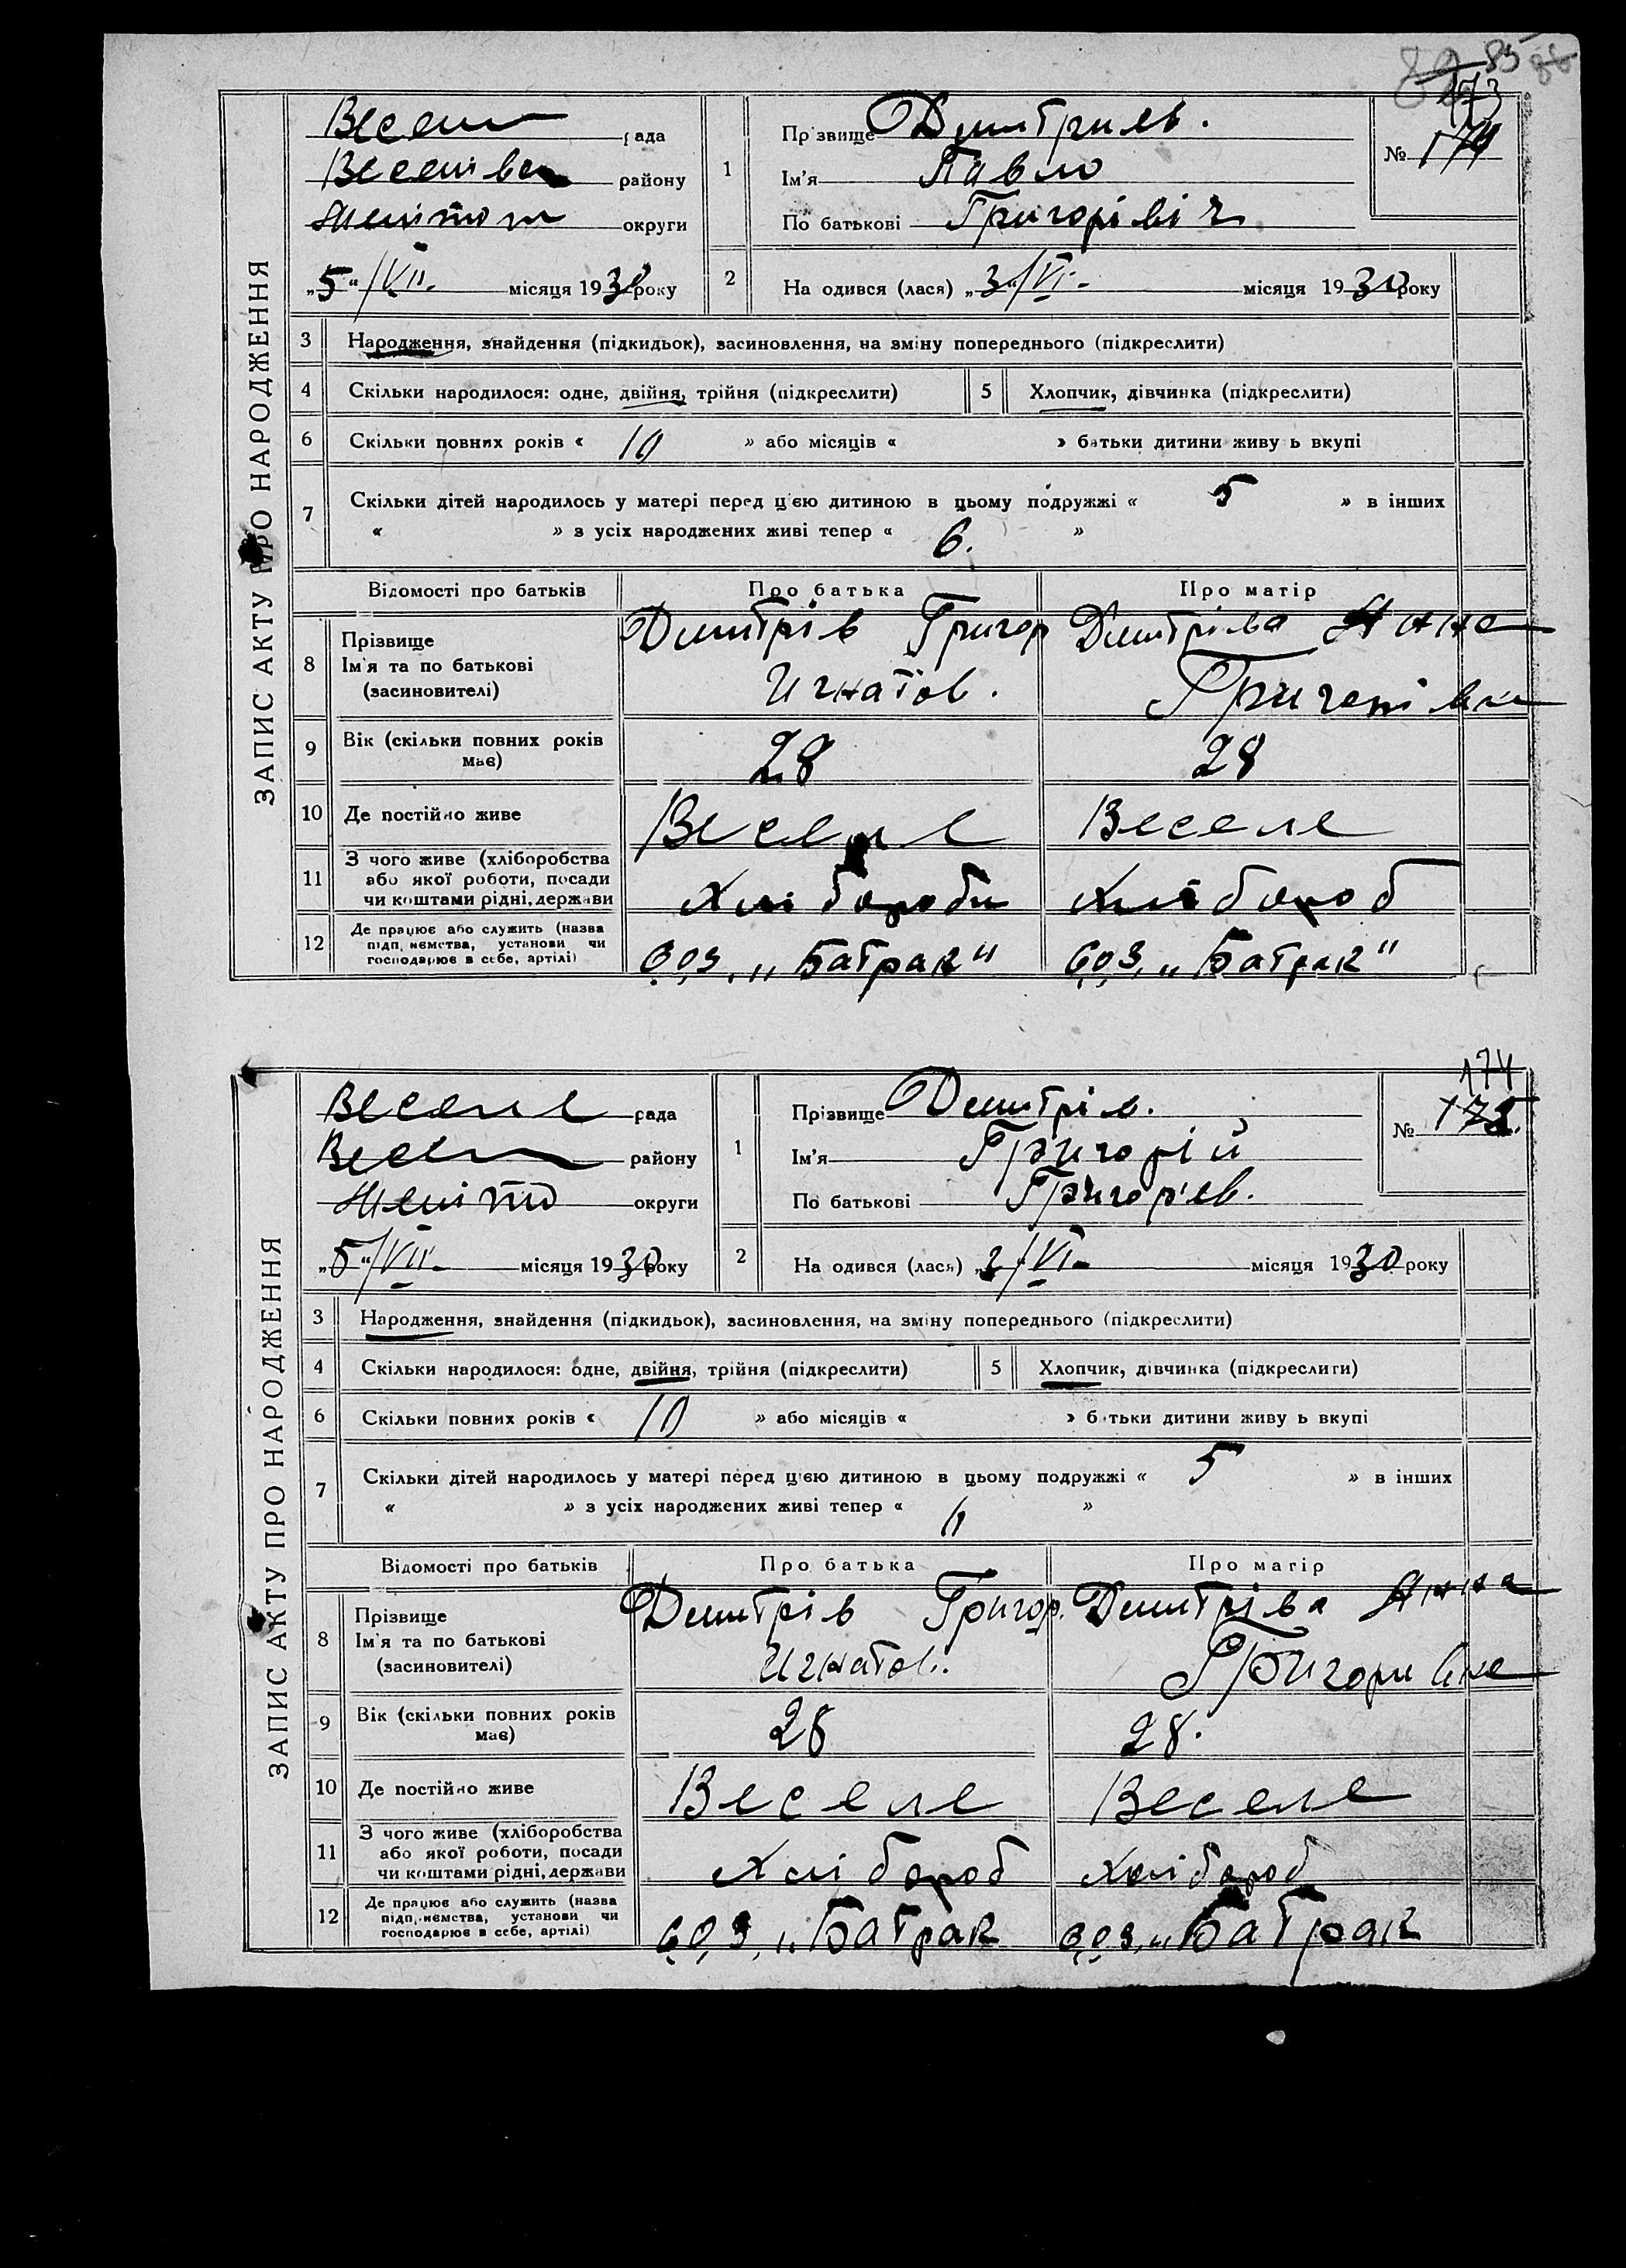 85
173
ЗАПИС АКТУ ПРО НАРОДЖЕННЯ
рада
району
округи
„5“/VII- місяця 1930 року
1
Прізвище Дмитриев.
Ім'я Павло
По батькові Григорівіч
№ 174
2
На одився (лася) „3“/VI- місяця 1930 року
3 Народження, знайдення (підкидьок), засиновлення, на зміну попереднього (підкреслити)
4 Скільки народилося: одне, двійня, трійня (підкреслити)
5 Хлопчик, дівчинка (підкреслити)
6 Скільки повних років « 10 » або місяців « » батьки дитини живу ь вкупі
7 Скільки дітей народилось у матері перед цією дитиною в цьому подружжі « 5 » в інших
« » з усіх народжених живі тепер « 6. »
Відомості про батьків Про батька Про матір
8 Прізвище
Ім'я та по батькові
(засиновителі)
Дмитрів Григор
Игнатов.
Дмитріва Анна
9 Вік (скільки повних років
має)
28 28
10 Де постійно живе Веселе Веселе
11 З чого живе (хліборобства
або якої роботи, посади
чи коштами рідні, держави
Хлібороб
12 Де працює або служить (назва
підп, иємства, установи чи
господарює в себе, артілі)
соз. „Батрак“ соз. „Батрак“
174
ЗАПИС АКТУ ПРО НАРОДЖЕННЯ
Веселе рада
району
округи
„5“/VII- місяця 1930 року
1
Прізвище Дмитрів.
Ім'я Григорій
По батькові Григор'ев.
№
2
На одився (лася) /VI- місяця 1930 року
3 Народження, знайдення (підкидьок), засиновлення, на зміну попереднього (підкреслити)
4 Скільки народилося: одне, двійня, трійня (підкреслити)
5 Хлопчик, дівчинка (підкреслити)
6 Скільки повних років « 10 » або місяців « » б тьки дитини живу ь вкупі
7 Скільки дітей народилось у матері перед цією дитиною в цьому подружжі « 5 » в інших
« » з усіх народжених живі тепер « »
Відомості про батьків Про батька Про матір
8 Прізвище
Ім'я та по батькові
(засиновителі)
Дмитрів Григор.
Игнатов.
Дмитріва Анна
9 Вік (скільки повних років
має)
28 28.
10 Де постійно живе Веселе Веселе
11 З чого живе (хліборобства
або якої роботи, посади
чи коштами рідні, держави
Хлібороб Хлібороб
12 Де працює або служить (назва
підп, иємства, установи чи
господарює в себе, артілі)
соз. „Батрак соз. „Батрак